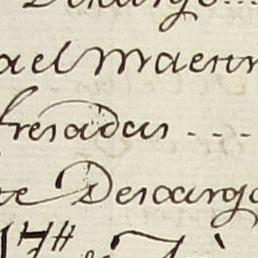 Descargo...
ael Maestr
fresadas ....
te Descargo
17#